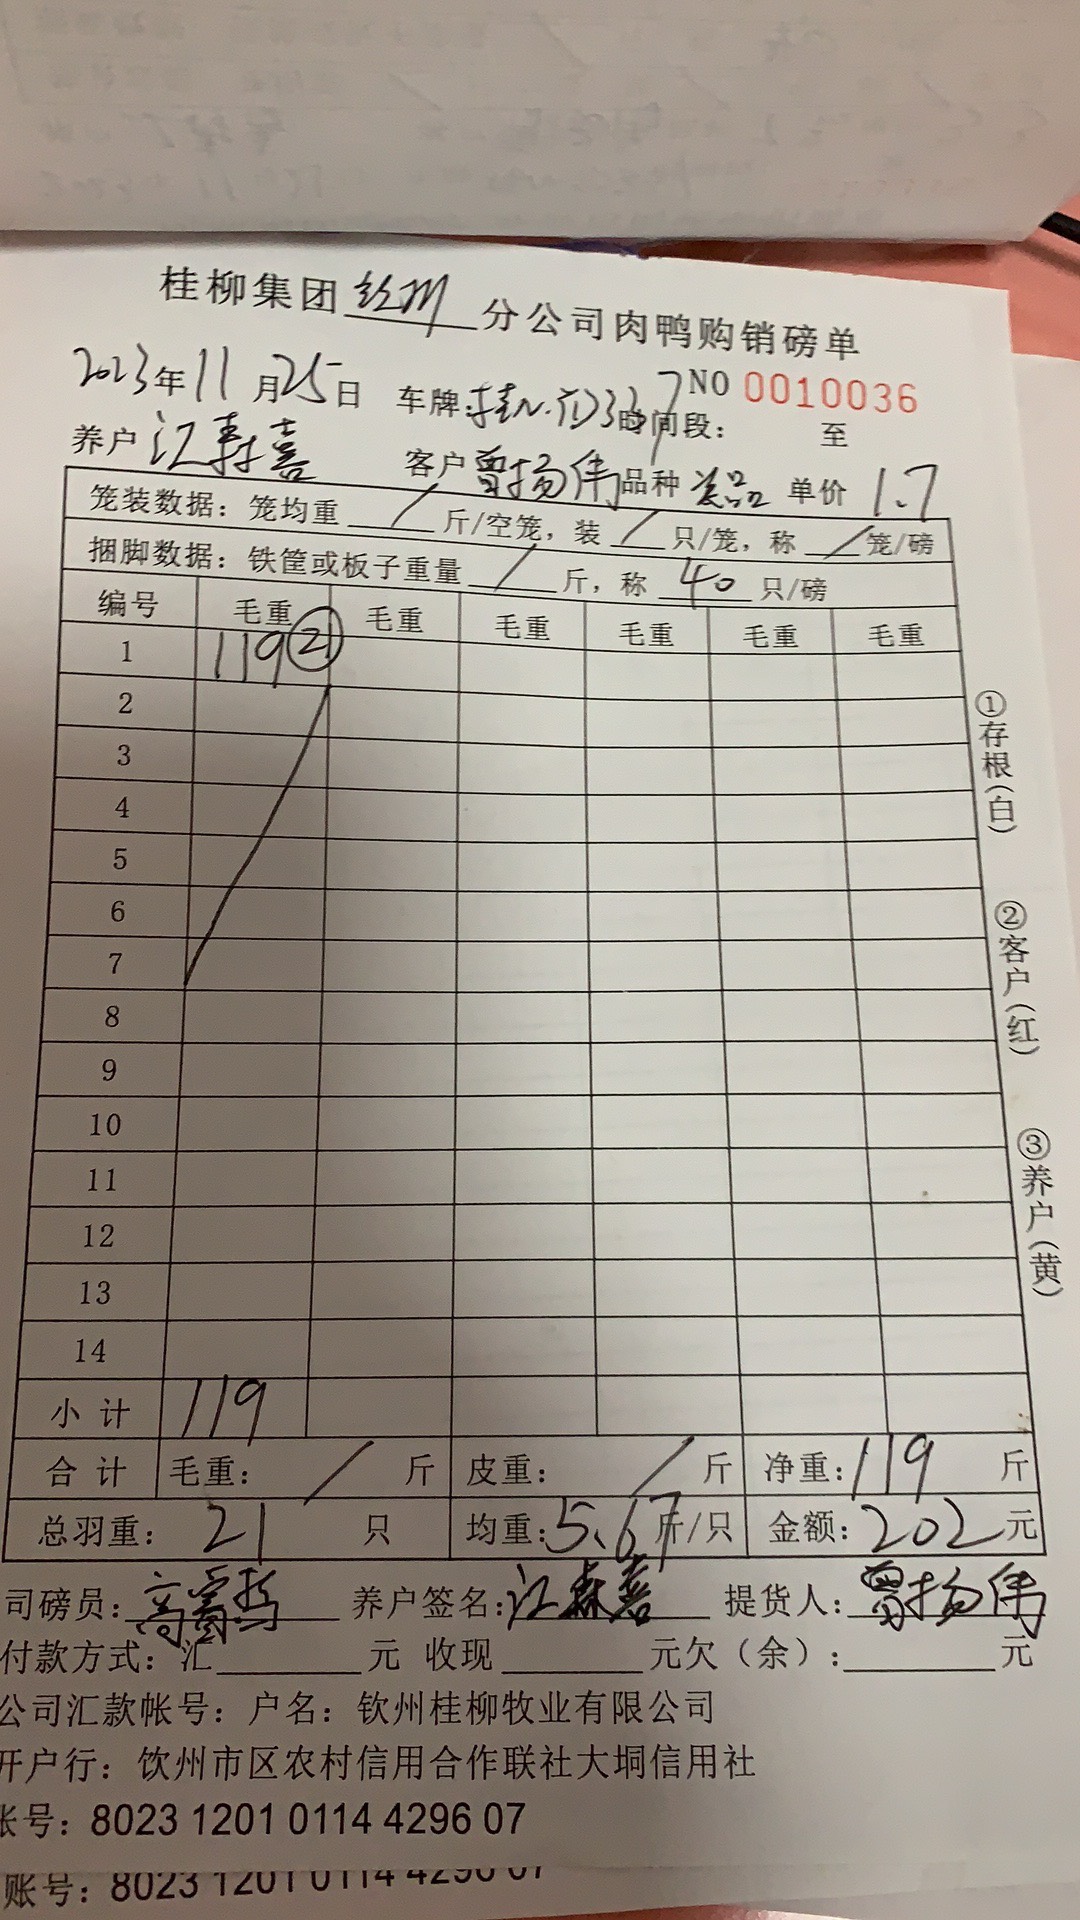 桂柳集团钦州分公司肉鸭购销磅单
2023年11月25日 车牌:桂N· 337 时间段: 至 NO 0010036
养户 江森喜 客户 曾扬伟 品种 次品 单价 1.7
笼装数据：笼均重 / 斤/空笼，装 / 只/笼，称 / 笼/磅
捆脚数据：铁筐或板子重量 / 斤，称 40 只/磅
编号 毛重 毛重 毛重 毛重 毛重 毛重
1 119 21
2
3
4
5
6
7
8
9
10
11
12
13
14
小计 119
合计 毛重: / 斤 皮重: / 斤 净重: 119 斤
总羽重: 21 只 均重: 5.67 斤/只 金额: 202 元
司磅员: 养户签名: 江森喜 提货人: 曾扬伟
付款方式: 汇 元 收现 元欠（余）: 元
公司汇款帐号: 户名: 钦州桂柳牧业有限公司
开户行: 饮州市区农村信用合作联社大垌信用社
账号: 8023 1201 0114 4296 07
账号: 8023 1201 0114 4296 07
①存根(白)
②客户(红)
③养户(黄)